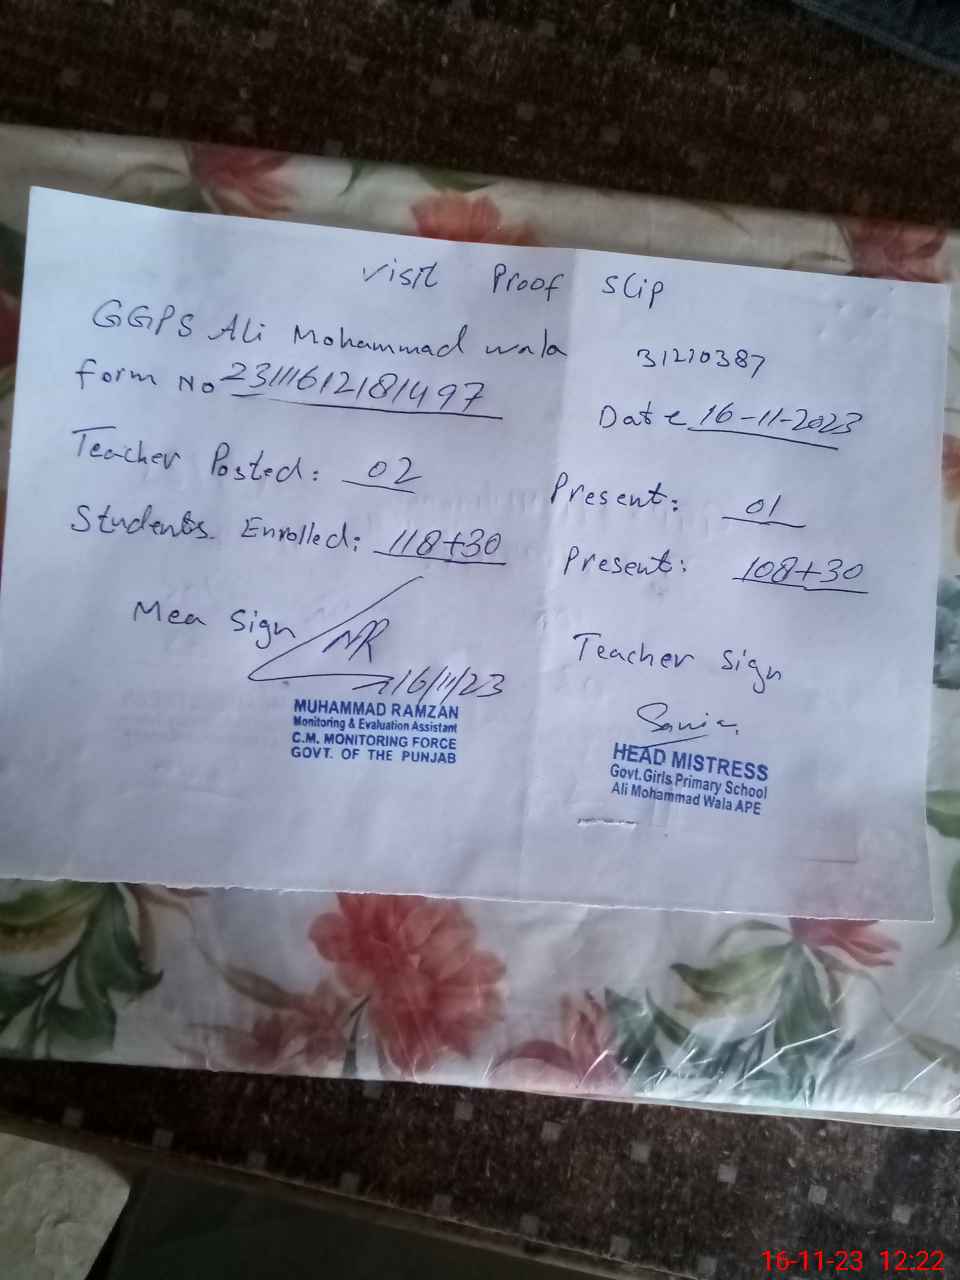 Visit Proof Slip
GGPS Ali Mohammad wala 31210387
Form No 23111612181497
Date 16-11-2023
Teacher Posted: 02 Present: 01
Students Enrolled: 118+30 Present: 108+30
Mea Sign
MR
16/11/23
MUHAMMAD RAMZAN
Monitoring & Evaluation Assistant
C.M. MONITORING FORCE
GOVT. OF THE PUNJAB
Teacher Sign
Sania
HEAD MISTRESS
Govt. Girls Primary School
Ali Mohammad Wala APE
16-11-23 12:22